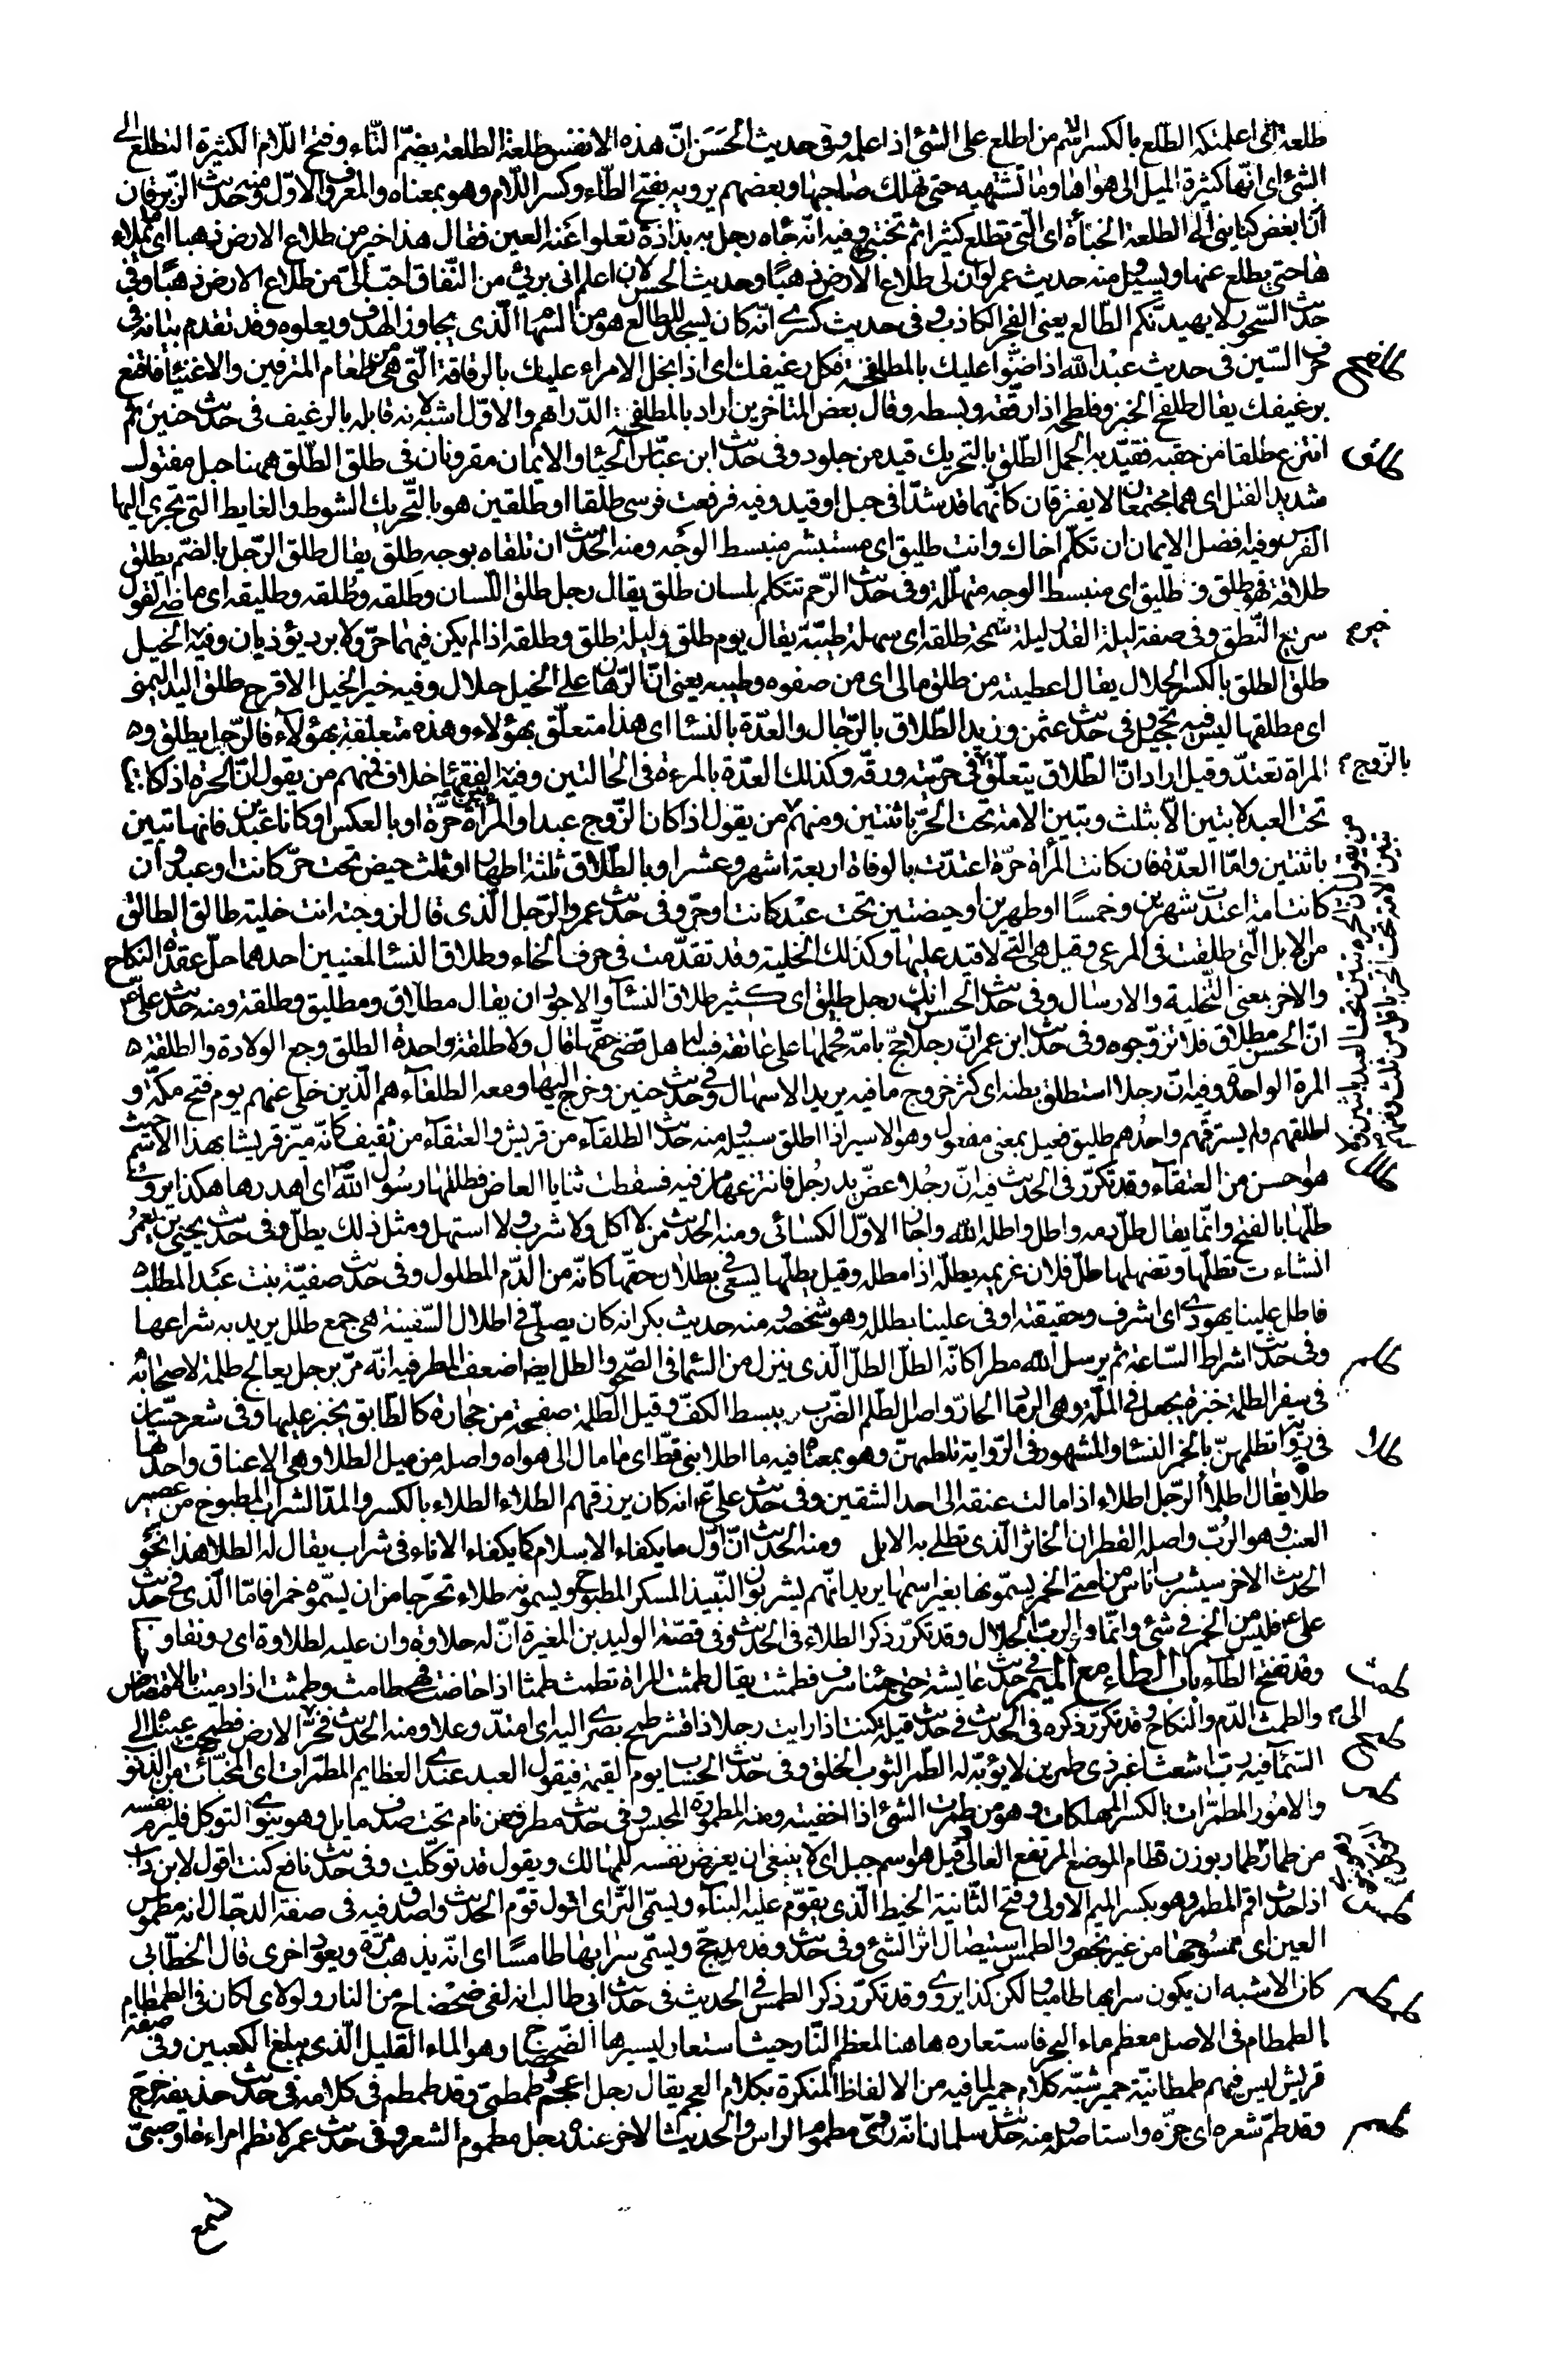 طلعة اى اعلمتكه الطلع بالكسر اسم من اطلع على الشئ اذا علمه وفى حديث الحسن انّ هذه الانفس طلعة الطلعة بضمّ الطّاء وفتح اللّام الكثيرة التطلع الى
الشئ اى انّها كثيرة الميل الى هواها وما تشتهيه حتى تهلك صاحبها وبعضهم يرويه بفتح الطّاء وكسر اللّام وهو بمعناه والمعروف الاوّل ومنه حديث الزّبرقان
انّ ابغض كنائنى الىّ الطلعة الخبأة اى الّتى تطلع كثيرا ثم تختبئ وفيه انّه جاءه رجل به بذاذة تعلوا عنه العين فقال هذا خير من طلاع الارض ذهبا اى ما يملاء
ها حتى يطلع عنها ويسيل ومنه حديث عمر لو ان لى طلاع الارض ذهبا وحديث الحسن لان اعلم انى برئ من النّفاق احبّ الىّ من طلاع الارض ذهبا وفى
حديث السّحور لا يهيدنّكم الطّالع يعنى الفجر الكاذب وفى حديث كسرى انّه كان يسجد للطالع هو من السّهام الّذى يجاوز الهدف ويعلوه وقد تقدم بيانه فى
حرف السّين فى حديث عبد الله اذا ضنّوا عليك بالمطلفحة فكل رغيفك اى اذا بخل الامراء عليك بالرقاقة الّتى هى من طعام المترفين والاغنياء فاقنع
برغيفك يقال طلفح الخبز وفلطحه اذا رقّقه وبسطه وقال بعض المتاخرين اراد بالمطلفحة الدّراهم والاوّل اشبه لانه قابله بالرغيف فى حديث حنين ثم
انتزع طلقا من حقبه فقيّد به الجمل الطّلق بالتحريك قيد من جلود وفى حديث ابن عبّاس الحياء والايمان مقرونان فى طلق الطّلق ههنا حبل مفتول
شديد الفتل اى هما مجتمعان لا يفترقان كانّهما قد شدّا فى حبل او قيد وفيه فرفعت فرسى طلقا او طلقين هو بالتّحريك الشوط والغايط التى تجرى اليها
الفرس وفيه افضل الايمان ان تكلّم اخاك وانت طليق اى مستبشر منبسط الوجه ومنه الحديث ان تلقاه بوجه طلق يقال طلق الرّجل بالضّم يطلق
طلاقة فهو طلق و طليق اى منبسط الوجه متهلّله وفى حديث الرّحم تتكلم بلسان طلق يقال رجل طلق اللّسان وطلقه وطُلقه وطليقه اى ماضى القول
سريع النّطق وفى صفة ليلة القدر ليلة سمحة طلقة اى سهلة طيّبة يقال يوم طلق وليلة طلق وطلقة اذا لم يكن فيهما حرّ ولا برد يؤذيان وفيه الخيل
طلق الطلق بالكسر الحلال يقال اعطيته من طلق مالى اى من صفوه وطيبه يعنى انّ الرّهان على الخيل حلال وفيه خير الخيل الاقرح طلق اليد اليمنى
اى مطلقها ليس فيه تحجيل وفى حديث عثمن وزيد الطّلاق بالرّجال والعدّة بالنساء اى هذا متعلّق بهؤلاء وهذه متعلقة بهؤلاء فالرّجل يطلق و
المراة تعتدّ وقيل اراد انّ الطّلاق يتعلّق فى حرّيته ورقّه وكذلك العدّة بالمرءة فى الحالتين وفيه الفقهاء خلاف فمنهم من يقول انّ الحرّة اذا كانت
تحت العبد لا تبين الّا بثلث وتبين الامة تحت الحرّ باثنتين ومنهم من يقول اذا كان الزّوج عبدا والمرأة حرّة او بالعكس او كانا عبدين فانها تبين
باثنتين وامّا العدّة فان كانت المرأة حرّة اعتدّت بالوفاة اربعة اشهر وعشرا وبالطّلاق ثلثة اطهار او ثلث حيض تحت حرّ كانت او عبد وان
كانت امة اعتدت شهرين وخمسًا او طهرين او حيضتين تحت عبد كانت او حرّ وفى حديث عمر والرّجل الّذى قال لزوجته انت خلية طالق الطالق
من الابل الّتى طلقت فى المرعى وقيل هى التى لا قيد عليها وكذلك الخلية وقد تقدّمت فى حرف الخاء وطلاق النساء لمعنيين احدهما حلّ عقدة النكاح
والاخر بمعنى التّخلية والارسال وفى حديث الحسن انك رجل طليق اى كثير طلاق النساء والاجود ان يقال مطلاق ومطليق وطلقة ومنه حديث علىّ ع
انّ الحسن مطلاق فلا تزوّجوه وفى حديث ابن عمر انّ رجلا حجّ بامّه فحملها على عاتقه فسأله هل قضى حقّها قال ولا طلقة واحدة الطلق وجع الولادة والطلقة
المرة الواحدة وفيه انّ رجلا استطلق بطنه اى كثر خروج ما فيه يريد الاسهال وفى حديث حنين وخرج اليها ومعه الطلقاء هم الّذين خلى عنهم يوم فتح مكّة و
اطلقهم ولم يسترقّهم واحدهم طليق فعيل بمعنى مفعول وهو الاسير اذا اطلق سبيله ومنه حديث الطلقاء من قريش والعتقاء من ثقيف كانّه ميّز قريشا بهذا الاسم حيث
هو احسن من العتقاء وقد تكرّر فى الحديث فيه انّ رجلا عضّ يد رجل فانتزعها من فيه فسقطت ثنايا العاض فطلّها رسول الله ص اى اهدرها هكذا يروى
طلّها بالفتح وانّما يقال طلّ دمه واطلّ واطله الله واجاز الاوّل الكسائى ومنه الحديث من لا اكل ولا شرب ولا استهل ومثل ذلك يطلّ وفى حديث يحيى بن يعمر
انشاءت تطلّها وتضهلها طلّ فلان غريمه يطلّه اذا مطله وقيل يطلّها يسعى فى بطلان حقّها كانّه من الدّم المطلول وفى حديث صفيّة بنت عبد المطلب
فاطل علينا يهودى اى اشرف وحقيقته اوفى علينا بطلله وهو شخصه ومنه حديث بكر انه كان يصلّى فى اطلال السّفينة هى جمع طلل يريد به شراعها
وفى حديث اشراط السّاعة ثم يرسل الله مطرا كانّه الطلّ الطلّ الّذى ينزل من السّماء فى الصّحو والطل ايضا اضعف المطر فيه انّه مرّ برجل يعالج طلمة لاصحابه
فى سفر الطلمة خبزة تجعل فى الملّة وهى الرماد الحارّ واصل الطلم الضّرب ببسط الكفّ وقيل الطّلمة صفيحة من حجارة كالطّابق يخبز عليها وفى شعر حسّان
فى رواية تطلمهنّ بالخمر النساء والمشهور فى الرّواية تلطمهنّ وهو بمعناه فيه ما اطلا نبى قطّ اى ما مال الى هواه واصله من ميل الطلا وهى الاعناق واحدتها
طلاة يقال اطلا الرّجل اطلاء اذا مالت عنقه الى احد الشقين وفى حديث علىّ ع انه كان يرزقهم الطلاء الطلاء بالكسر والمدّ الشراب المطبوخ من عصير
العنب وهو الرُبّ واصله القطران الخاثر الّذى تطلى به الابل ومنه الحديث انّ اوّل ما يكفاء الاسلام كما يكفاء الاناء فى شراب يقال له الطلاء هذا نحو
الحديث الاخر سيشرب اناس من امتى الخمر يسمّونها بغير اسمها يريد انّهم يشربون النّبيذ المسكر المطبوخ ويسمونه طلاء تحرّجا من ان يسمّوه خمرا فامّا الّذى فى حديث
على ع فليس من الخمر فى شئ وانّما هو الربّ الحلال وقد تكرّر ذكر الطلاء فى الحديث وفى قصّة الوليد بن المغيرة انّ له حلاوة وان عليه لطلاوة اى رونقا و
وقد تفتح الطّاء باب الطاء مع الميم فى حديث عايشة حتى جئنا سرف فطمثت يقال طمثت المراة تطمث طمثا اذا حاضت فهى طامث وطمثت اذا دميت بالاقتضاض
والطمث الدّم والنكاح وقد تكرّر ذكره فى الحديث فى حديث قيلة كنت اذا رايت رجلا ذا قشر طمح بصرى اليه اى امتدّ وعلا ومنه الحديث فخرّ الى الارض فطمحت عيناه الى
السّماء فيه ربّ اشعث اغبر ذى طمرين لا يؤبّه له الطّمر الثوب الخلق وفى حديث الحساب يوم القيمة فيقول العبد عندى العظايم المطمّرات اى المخبّآت من الذّنوب
والامور المطمّرات بالكسر المهلكات وهو من طمرت الشئ اذا اخفيته ومنه المطمورة الحبس وفى حديث مطرف من نام تحت صدف مايل وهو ينوى التوكل فليرم نفسه
من طمار طمار بوزن قطام الموضع المرتفع العالى وقيل هو اسم جبل اى لا ينبغى ان يعرض نفسه للمهالك ويقول قد توكّلت وفى حديث نافع كنت اقول لابن داب
اذا حدث اقم المطمر وهو بكسر الميم الاولى وفتح الثّانية الخيط الّذى يقوّم عليه البناء ويسمّى التّر اى اقول قوّم الحديث واصدق فيه فى صفة الدجّال انه مطموس
العين اى ممسوحها من غير بخص والطمس استيصال اثر الشئ وفى حديث وفد مذحج ويسمّى سرابها طامسًا اى انّه يذهب مرّة ويعود اخرى قال الخطّابى
كان الاشبه ان يكون سرابها طاميا ولكن كذا يروى وقد تكرّر ذكر الطمس فى الحديث فى حديث ابى طالب انه لفى ضحضاح من النار ولولاى لكان فى الطمطام
الطمطام فى الاصل معظم ماء البحر فاستعاره هاهنا لمعظم النّار حيث استعار ليسيرها الضّحضاح وهو الماء القليل الّذى يبلغ الكعبين وفى صفة
قريش ليس فيهم طمطانيّة حمير شبّه كلام حمير لما فيه من الالفاظ المنكرة بكلام العجم يقال رجل اعجم طمطمىّ وقد طمطم فى كلامه فى حديث حذيفة خرج
وقد طمّ شعره اى جزّه واستاصله ومنه حديث سلمان انّه رؤى مطموم الراس والحديث الاخر عنده رجل مطموم الشعر وفى حديث عمر لا تطم امراءة او صبىّ
طلفح
طلق
خيرم
بالزّوج
طلل
طلم
طلا
طمث
الى
طمح
طمر
طمس
طمطم
طمم
تسمع